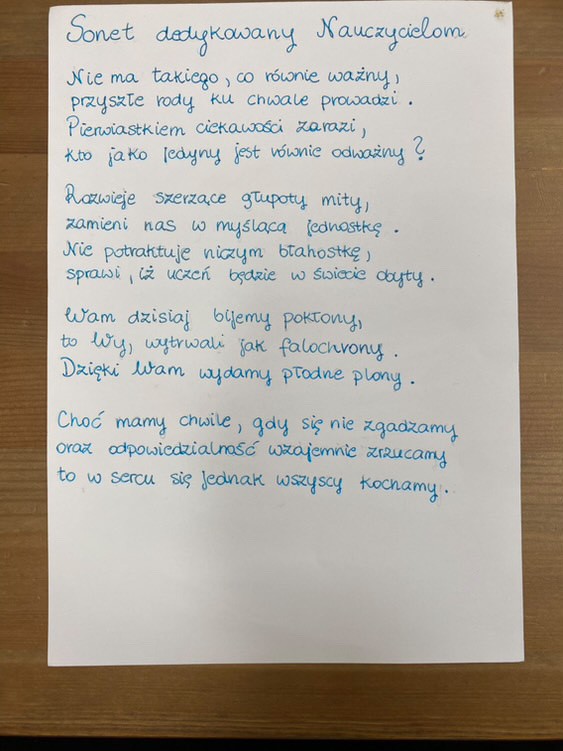 Sonet dedykowany Nauczycielom
Nie ma takiego, co równie ważny,
przyszłe rody ku chwale prowadzi.
Pierwiastkiem ciekawości zarazi,
kto jako jedyny jest równie odważny?
Rozwieje szerzące głupoty mity,
zamieni nas w myślącą jednostkę.
Nie potraktuje niczym błahostkę,
sprawi, iż uczeń będzie w świecie obyty.
Wam dzisiaj bijemy pokłony,
to Wy, wytrwali jak falochrony.
Dzięki Wam wydamy płodne plony.
Choć mamy chwile, gdy się nie zgadzamy
oraz odpowiedzialność wzajemnie zrzucamy
to w sercu się jednak wszyscy kochamy.